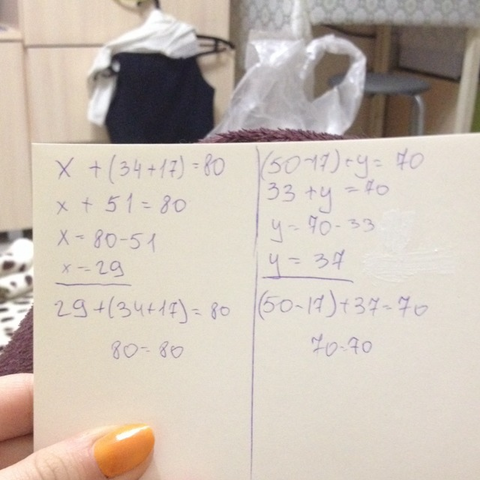 x + (34+17) = 80
x + 51 = 80
x = 80-51
x = 29
29 + (34+17) = 80
80 = 80
(50-17) + y = 70
33 + y = 70
y = 70-33
y = 37
(50-17) + 37 = 70
70=70